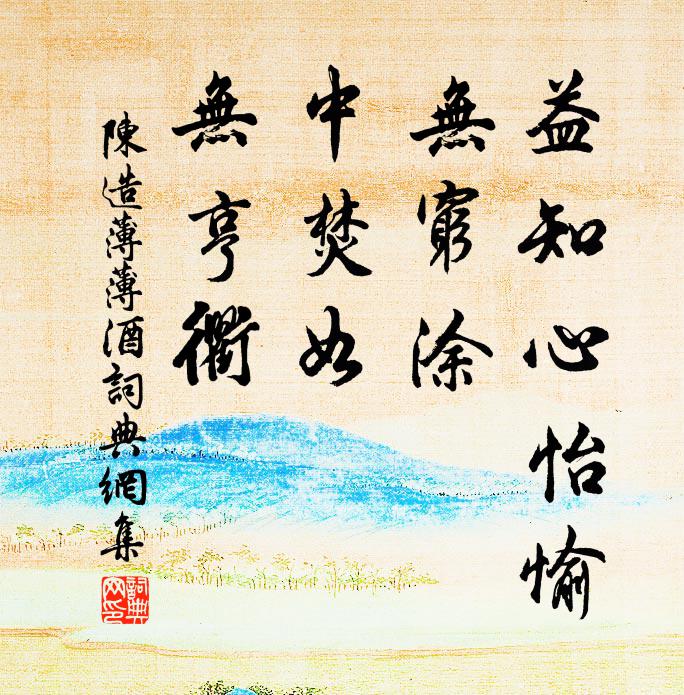 益知心怡愉
無窮涂
中焚如
無亨衢
陳造薄薄酒詞典網集
詞典
網印